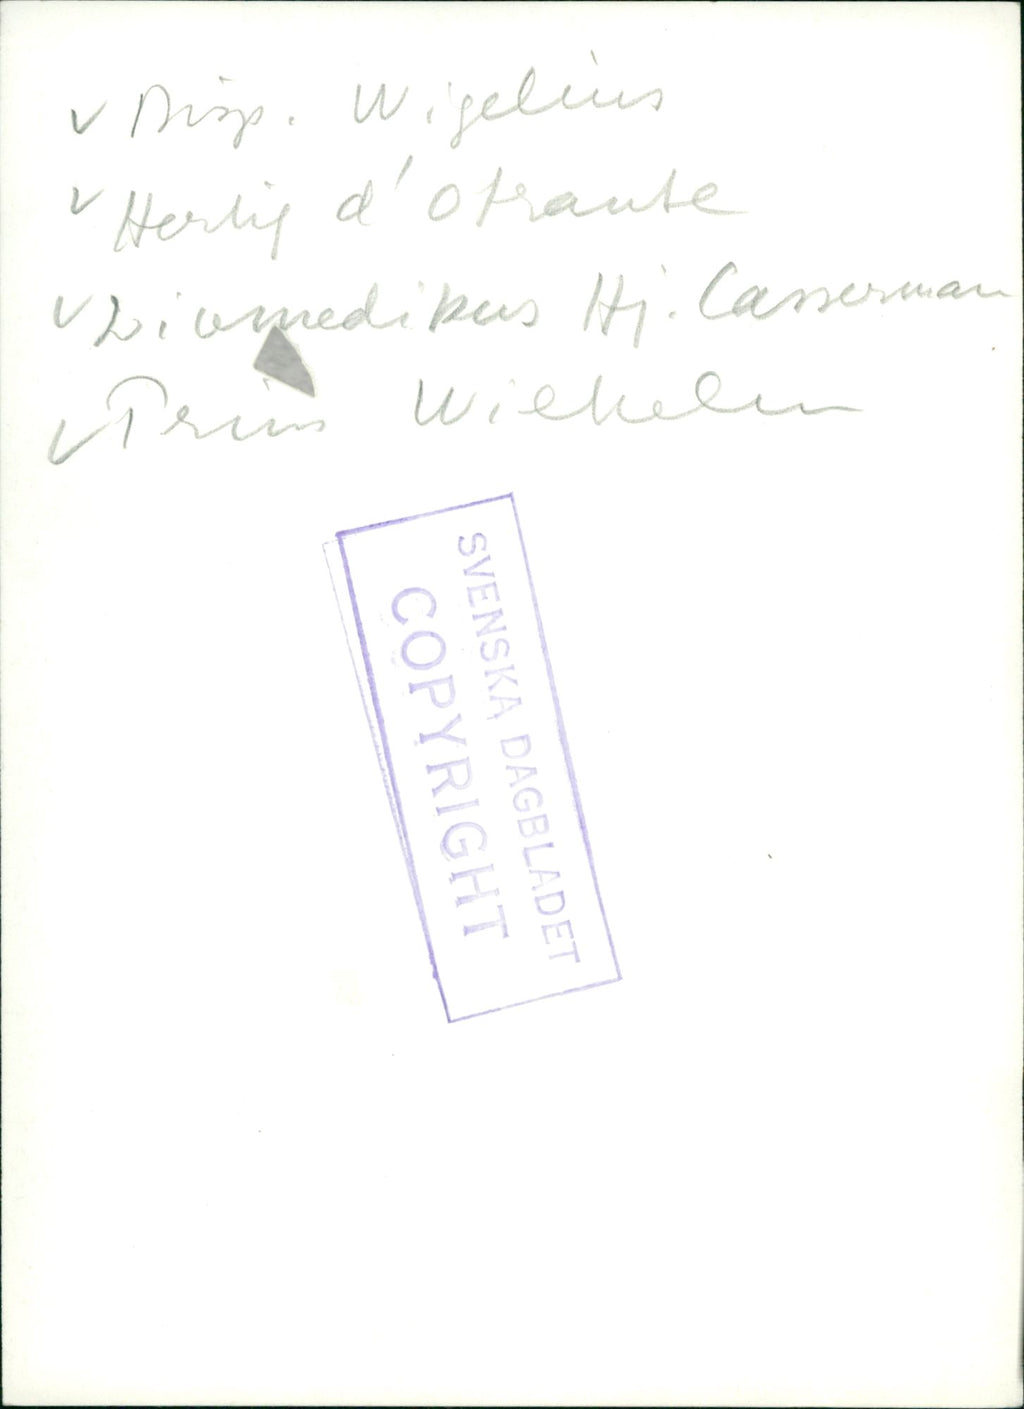 v Disp. Wigelius
v Hertig d'Otrante
v Livmedikus Hj. Casserman
v Prins Wilhelm
SVENSKA DAGBLADET
COPYRIGHT